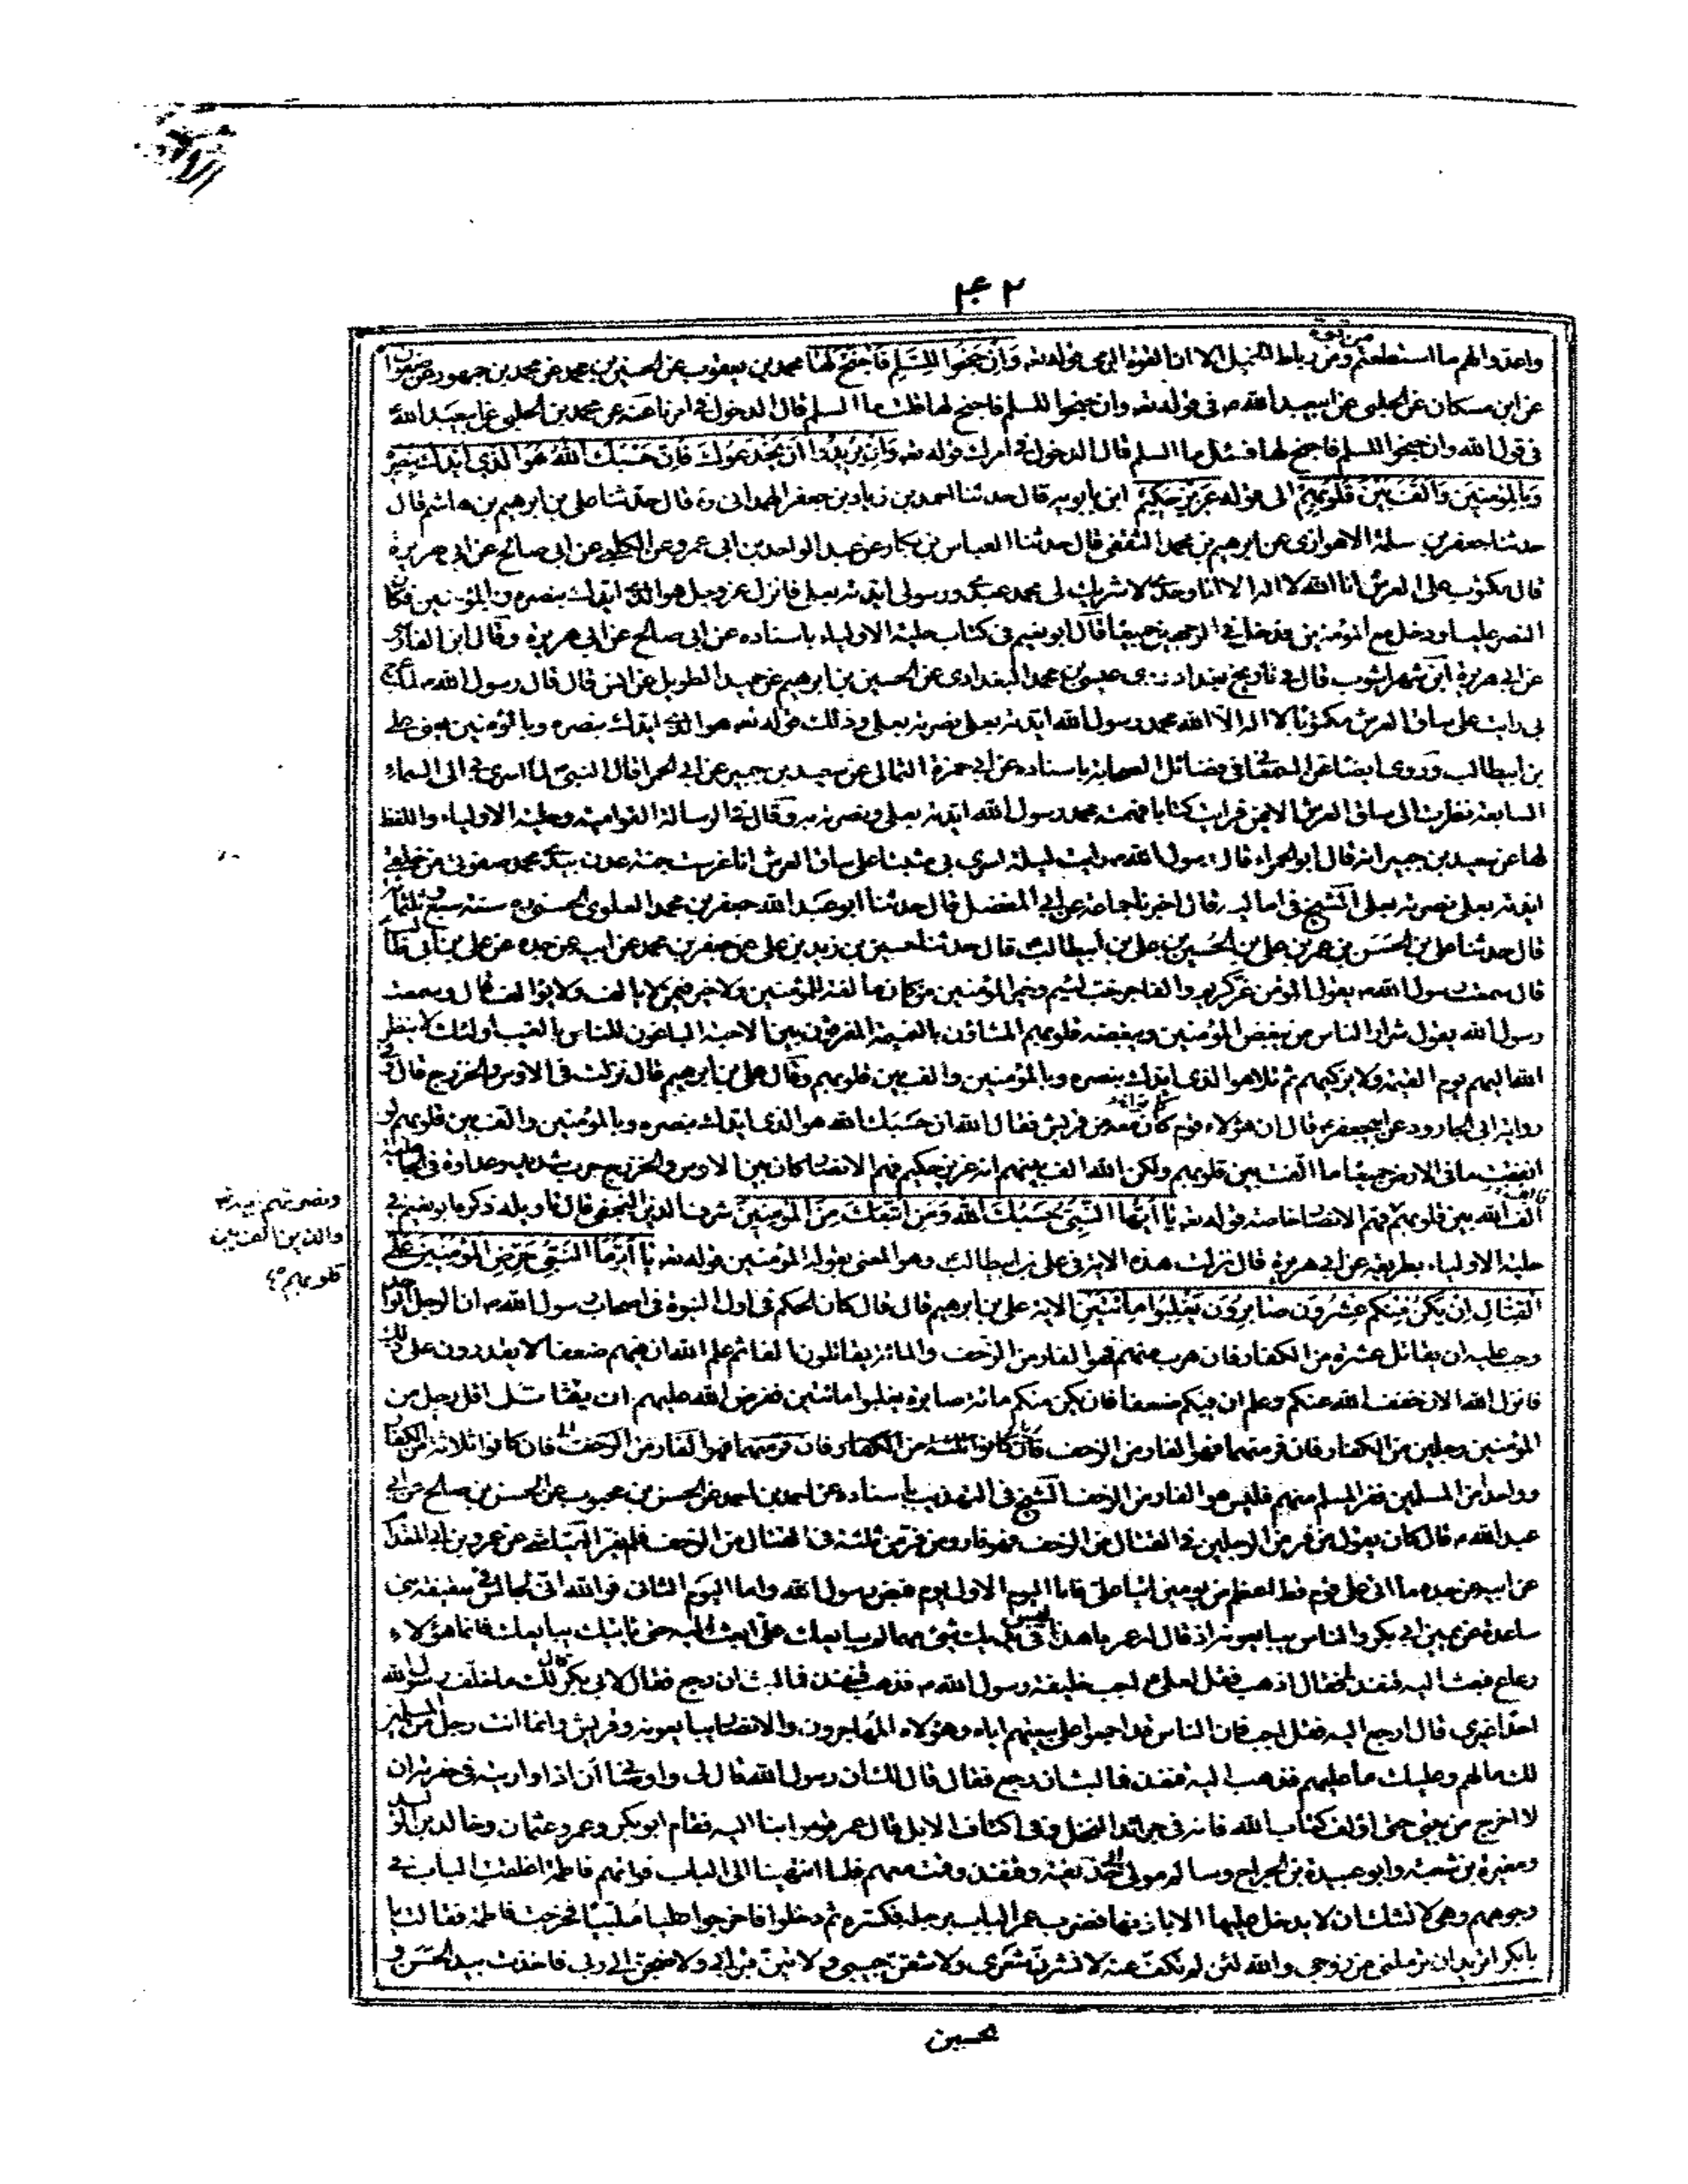 ٤٠٢
واعدوا لهم ما استطعتم من قوة ومن رباط الخيل الا ان القوة الرمى قوله تعه وَاِنْ جَنَحُوا لِلسَّلمِ فَاجْنَحْ لَهَا محمد بن يعقوب عن الحسين بن محمد عن محمد بن جمهور عن صفوان
عن ابن مسكان عن الحلبى عن ابيعبد الله ع فى قوله تعه وان جنحوا للسلم فاجنح لها قلت ما السلم قال الدخول فى امرنا عنه عن محمد بن الحلبى عن ابيعبد الله
فى قول الله وان جنحوا للسلم فاجنح لها فسئل ما السلم قال الدخول فى امرك قوله تعه وَاِنْ يُرِيدُوا اَنْ يَخْدَعُوكَ فَاِنَّ حَسْبَكَ اللهُ هُوَ الَّذى اَيَّدَكَ بِنَصْرِهِ
وَبِالْمُؤْمِنِينَ وَاَلَّفَ بَيْنَ قُلُوبِهِمْ الى قوله عَزِيزٌ حَكِيمٌ ابن بابويه قال حدثنا احمد بن زياد بن جعفر الهمدانى ره قال حدّثنا على بن ابرهيم بن هاشم قال
حدثنا جعفر بن سلمة الاهوازى عن ابرهيم بن محمد الثقفى قال حدثنا العباس بن بكار عن عبد الواحد بن ابى عمرو عن الكلبى عن ابى صالح عن ابى هريرة
قال مكتوب على العرش انا الله لا اله الا انا وحدى لا شريك لى محمد عبدى ورسولى ايدته بعلى فانزل عز وجل هو الذى ايدك بنصره وبالمؤمنين فكان
النصر عليا ودخل مع المؤمنين فدخل فى الوجهين جميعا قال ابو نعيم فى كتاب حلية الاولياء باسناده عن ابى صالح عن ابى هريرة وقال ابن الفارسى
عن ابى هريرة ابن شهراشوب قال فى تاريخ بغداد روى عيسى بن محمد البغدادى عن الحسين بن ابرهيم عن حميد الطويل عن انس قال قال رسول الله ص لما عرج
بى رايت على ساق العرش مكتوبا لا اله الا الله محمد رسول الله ايدته بعلى نصرته بعلى وذلك قوله تعه هو الذى ايدك بنصره وبالمؤمنين يعنى على
بن ابيطالب وروى ايضا عن السمعانى فى فضائل الصحابة باسناده عن ابى حمزة الثمالى عن سعيد بن جبير عن ابى الحمرا قال النبىّ لما اسرى بى الى السماء
السابعة نظرت الى ساق العرش الايمن فرايت كتابا فهمته محمد رسول الله ايدته بعلى ونصرته به وقال فى الرسالة القوامية وحلية الاولياء واللفظ
لها عن سعيد بن جبير انه قال ابو الحمراء قال رسول الله ص رايت ليلة اسرى بى مثبتا على ساق العرش انا غرست جنة عدن بيدى محمد صفوتى من خلقى
ايدته بعلى نصرته بعلى الشيخ فى اماليه قال اخبرنا جماعة عن ابى المفضل قال حدثنا ابو عبد الله جعفر بن محمد العلوى الحسنى ره سنة سبع وثلثمائة
قال حدثنا على بن الحسَن بن عمر بن على بن الحُسين بن على بن ابيطالب قال حدثنا حسين بن زيد بن على عن جعفر بن محمد عن ابيه عن جده عن على بن ابى طالب
قال سمعت رسول الله ص يقول المؤمن غرّ كريم والفاجر خبّ لئيم وخير المؤمنين من كان مالفة للمؤمنين ولا خير فيمن لا يالف ولا يؤالف قال وسمعت
رسول الله يقول شرار الناس من يبغض المؤمنين وتبغضه قلوبهم المشاؤن بالنميمة المفرقون بين الاحبة الباغون للناس العيب اولئك لا ينظر
الله اليهم يوم القيمة ولا يزكيهم ثم تلا هو الذى ايدك بنصره وبالمؤمنين والف بين قلوبهم وقال على بن ابرهيم قال نزلت فى الاوس والخزرج قال وفى
رواية ابى الجارود عن ابيجعفر ع قال ان هؤلاء قوم كانوا معه من قريش فقال الله ان حَسبَك الله هو الذى ايدك بنصره وبالمؤمنين والف بين قلوبهم لو
انفقت ما فى الارض جميعا ما الفت بين قلوبهم ولكن الله الف بينهم انه عزيز حكيم فهم الانصار كان بين الاوس والخزرج حرب شديد وعداوة فى الجاهلية
فالف الله بين قلوبهم فهم الانصار خاصة قوله تعه يٰا اَيُّهَا النَّبِيُّ حَسْبُكَ اللهُ وَمَنِ اتَّبَعَكَ مِنَ الْمُؤْمِنِينَ شرف الدين النجفى قال تاويله ذكره ابو نعيم فى
حلية الاولياء بطريقه عن ابى هريرة قال نزلت هذه الاية فى على بن ابيطالب وهو المعنى بقوله المؤمنين قوله تعه يٰا اَيُّهَا النَّبِيُّ حَرِّضِ الْمُؤْمِنِينَ عَلَى
الْقِتٰالِ اِنْ يَكُنْ مِنْكُمْ عِشْرُونَ صٰابِرُونَ يَغْلِبُوا مِائَتَيْنِ الاية على بن ابرهيم قال قال كان الحكم فى اول النبوة فى اصحاب رسول الله ص ان الرجل الواحد
وجب عليه ان يقاتل عشرة من الكفار فان هرب منهم فهو الفار من الزحف والمائة يقاتلون الفا ثم علم الله ان فيهم ضعفا لا يقدرون على ذلك
فانزل الله الان خفف الله عنكم وعلم ان فيكم ضعفا فان يكن منكم مائة صابرة يغلبوا مائتين ففرض الله عليهم ان يقاتل اقل رجل من
المؤمنين رجلين من الكفار فان فر منهما فهو الفار من الزحف فان كانوا ثلثة من الكفار وفان فر منهما فهو الفار من الزحف فان كانوا ثلاثة من الكفار
وواحد من المسلمين ففر المسلم منهم فليس هو الفار من الزحف الشيخ فى التهذيب باسناده عن احمد بن احمد عن الحسن بن محبوب عن الحسن بن صلح عن ابى
عبد الله ع قال كان يقول من فر من الرجلين فى القتال من الزحف فهو فار ومن فر من ثلثة فى القتال من الزحف فلم يفر العيّاشى عن عمرو بن ابى المقدام
عن ابيه عن جده ما اتى على قوم قط اعظم من يومين اتيا على فاما اليوم الاول يوم قبض رسول الله واما اليوم الثانى فوالله انى لجالس فى سقيفة بنى
ساعدة عن يمين ابى بكر والناس يبايعونه اذ قال له عمر يا هذا ليس فى يديك شئ مهما لم يبايعك علىّ ابعث اليه حتى ياتيك يبايعك فانما هؤلاء
رعاع فبعث اليه قنفذ فقال اذهب فقل لعلى ع اجب خليفة رسول الله ص فذهب قنفذ فما لبث ان رجع فقال لابى بكر قال لك ما خلّف رسول الله
احدا غيرى قال ارجع اليه فقل اجب فان الناس قد اجمعوا على بيعتهم اياه وهؤلاء المهاجرون والانصار يبايعونه وقريش وانما انت رجل من المسلمين
لك ما لهم وعليك ما عليهم فذهب اليه قنفذ فما لبث ان رجع فقال قال لك ان رسول الله قال لى واوصانى ان اذا واريته فى حفرته ان
لا اخرج من بيتى حتى اؤلف كتاب الله فانه فى جرائد النخل وفى اكتاف الابل قال عمر قوموا بنا اليه فقام ابو بكر وعمر وعثمان وخالد بن الوليد
ومغيرة بن شعبة وابو عبيدة بن الجراح وسالم مولى ابى حذيفة وقنفذ وقمت معهم فلما انتهينا الى الباب فراتهم فاطمة اغلقت الباب فى
وجوههم وهى لا تشك ان لا يدخل عليها الا باذنها فضرب عمر الباب برجله فكسره ثم دخلوا فاخرجوا عليا ملببا فخرجت فاطمة فقالت يا
با بكر اتريد ان ترملنى من زوجى والله لئن لم تكفّ عنه لانشرن شعرى ولاشقن جيبى ولاتين قبر ابى ولاصيحن الى ربى فاخذت بيد الحسَن و
ونصرتهم بيد
والذين الف بين
قلوبهم
محسين